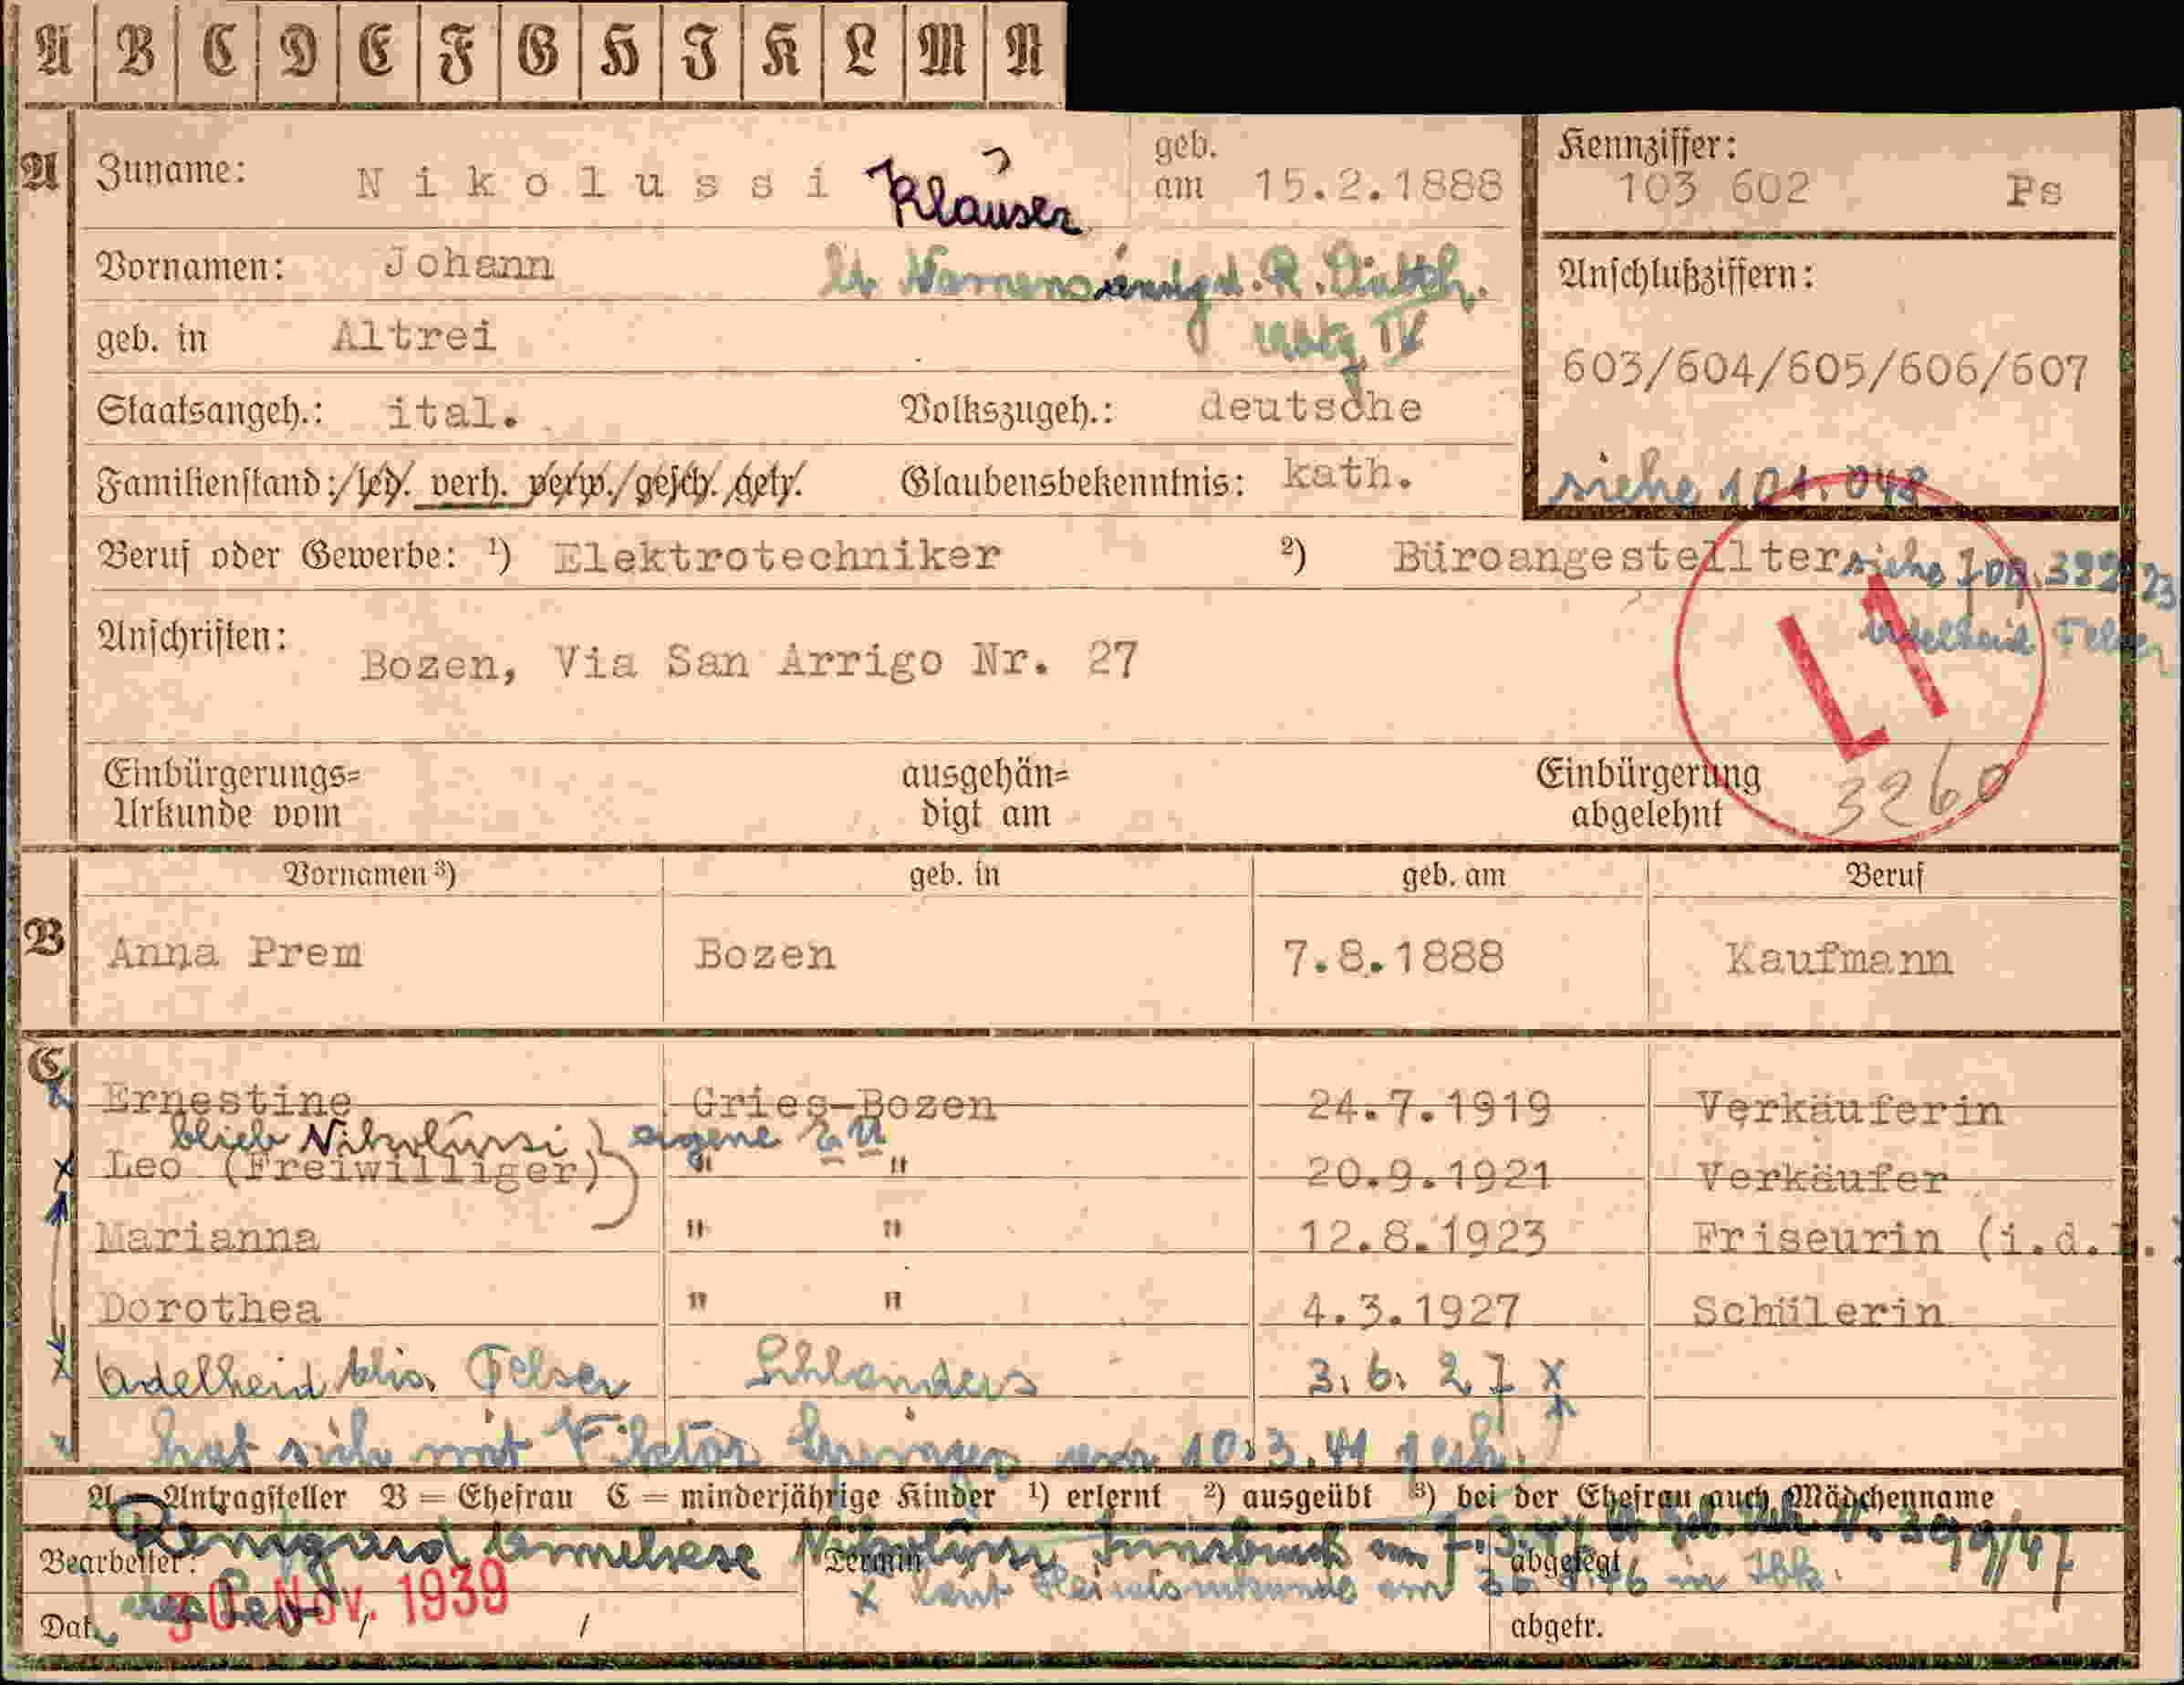 A B C D E F G H I K L M N
A Zuname: Nikolussi Klauser geb. am 15.2.1888 Kennziffer: 103 602 Ps
Vornamen: Johann Anschlußziffern:
geb. in Altrei
603/604/605/606/607
Staatsangeh.: ital. Volkszugeh.: deutsche
Familienstand: led. verh. verw. gesch. getr. Glaubensbekenntnis: kath. siehe 101.048
Beruf oder Gewerbe: ¹) Elektrotechniker ²) Büroangestellter siehe
Adelheid Felser
Anschriften: Bozen, Via San Arrigo Nr. 27
L1
Einbürgerungs= Urkunde vom ausgehän= digt am Einbürgerung abgelehnt
3260
Vornamen ³) geb. in geb. am Beruf
B Anna Prem Bozen 7.8.1888 Kaufmann
C
Ernestine Gries-Bozen 24.7.1919 Verkäuferin
blieb Nikolussi eigene
Leo (Freiwilliger) " " 20.9.1921 Verkäufer
Marianna " " 12.8.1923 Friseurin (i.d.
Dorothea " " 4.3.1927 Schülerin
Adelheid Felser Schlanders 3.6.27 x
hat sich mit am 10.3.41
A = Antragsteller B = Ehefrau C = minderjährige Kinder ¹) erlernt ²) ausgeübt ³) bei der Ehefrau auch Mädchenname
Anneliese Nikolussi Innsbruck am 399/47
Bearbeiter: Termin abgelegt
x laut am in Ibk.
Dat. 30. Nov. 1939 / / abgetr.